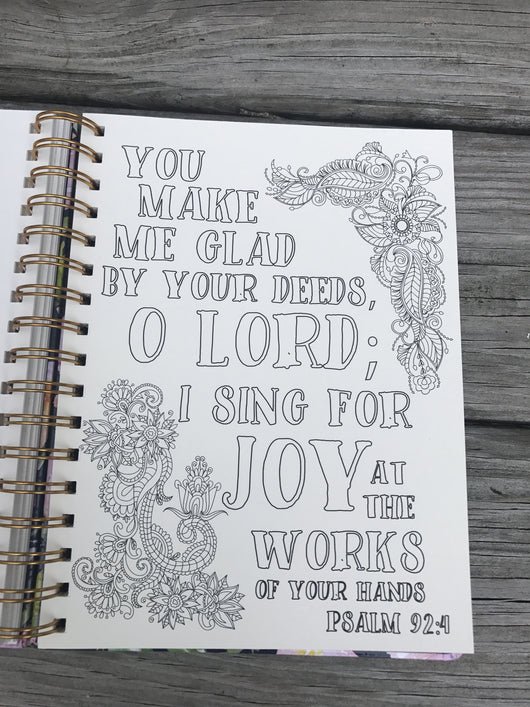 YOU
MAKE
ME GLAD
BY YOUR DEEDS,
O LORD;
I SING FOR
JOY AT
THE
WORKS
OF YOUR HANDS
PSALM 92:4